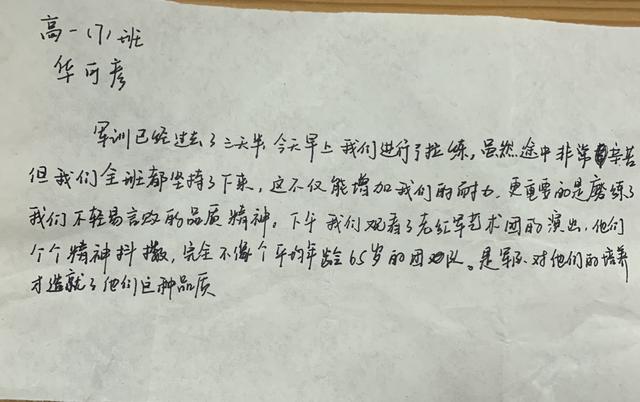 高一(7)班
华可彦
军训已经过去了三天半,今天早上我们进行了拉练,虽然途中非常辛苦
但我们全班都坚持了下来,这不仅能增加我们的耐力,更重要的是磨练了
我们不轻易言败的品质精神。下午我们观看了老红军艺术团的演出,他们
个个精神抖擞,完全不像个平均年龄65岁的团队。是军队对他们的培养
才造就了他们这种品质